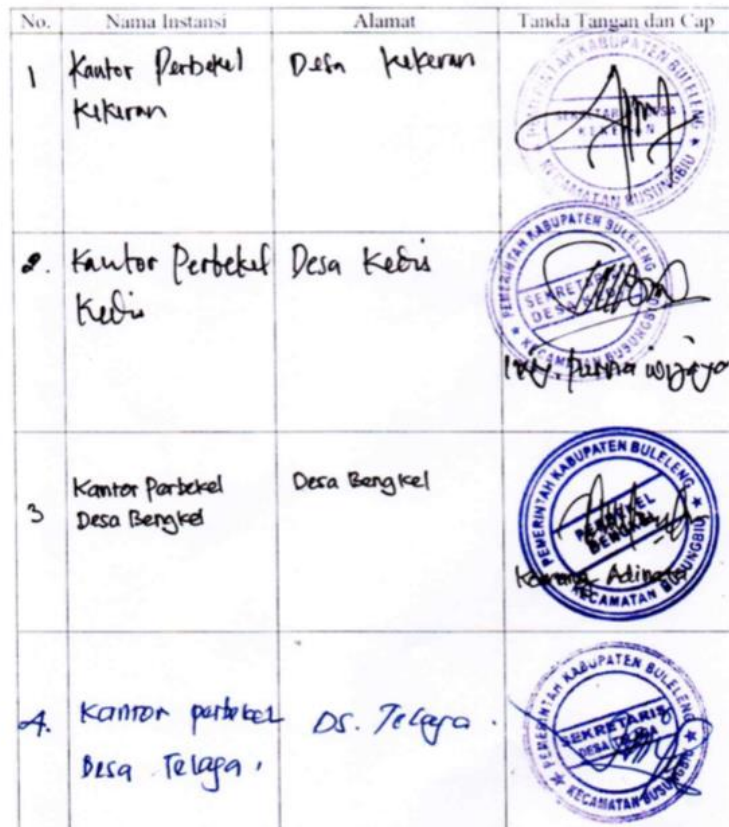 No. Nama Instansi Alamat Tanda Tangan dan Cap
1 Kantor Perbekel Desa Kekeran
Kekeran
PEMERINTAH KABUPATEN BULELENG
SEKRETARIS DESA
KEKERAN
KECAMATAN BUSUNGBIU
2. Kantor Perbekel Desa Kedis
Kedis
PEMERINTAH KABUPATEN BULELENG
SEKRETARIS
DESA
KECAMATAN BUSUNGBIU
wijaya
3 Kantor Perbekel Desa Bengkel
Desa Bengkel
PEMERINTAH KABUPATEN BULELENG
PERBEKEL
BENGKEL
Adinata
KECAMATAN BUSUNGBIU
4. Kantor perbekel DS. Telaga.
Desa Telaga.
PEMERINTAH KABUPATEN BULELENG
SEKRETARIS
DESA TELAGA
KECAMATAN BUSUNGBIU